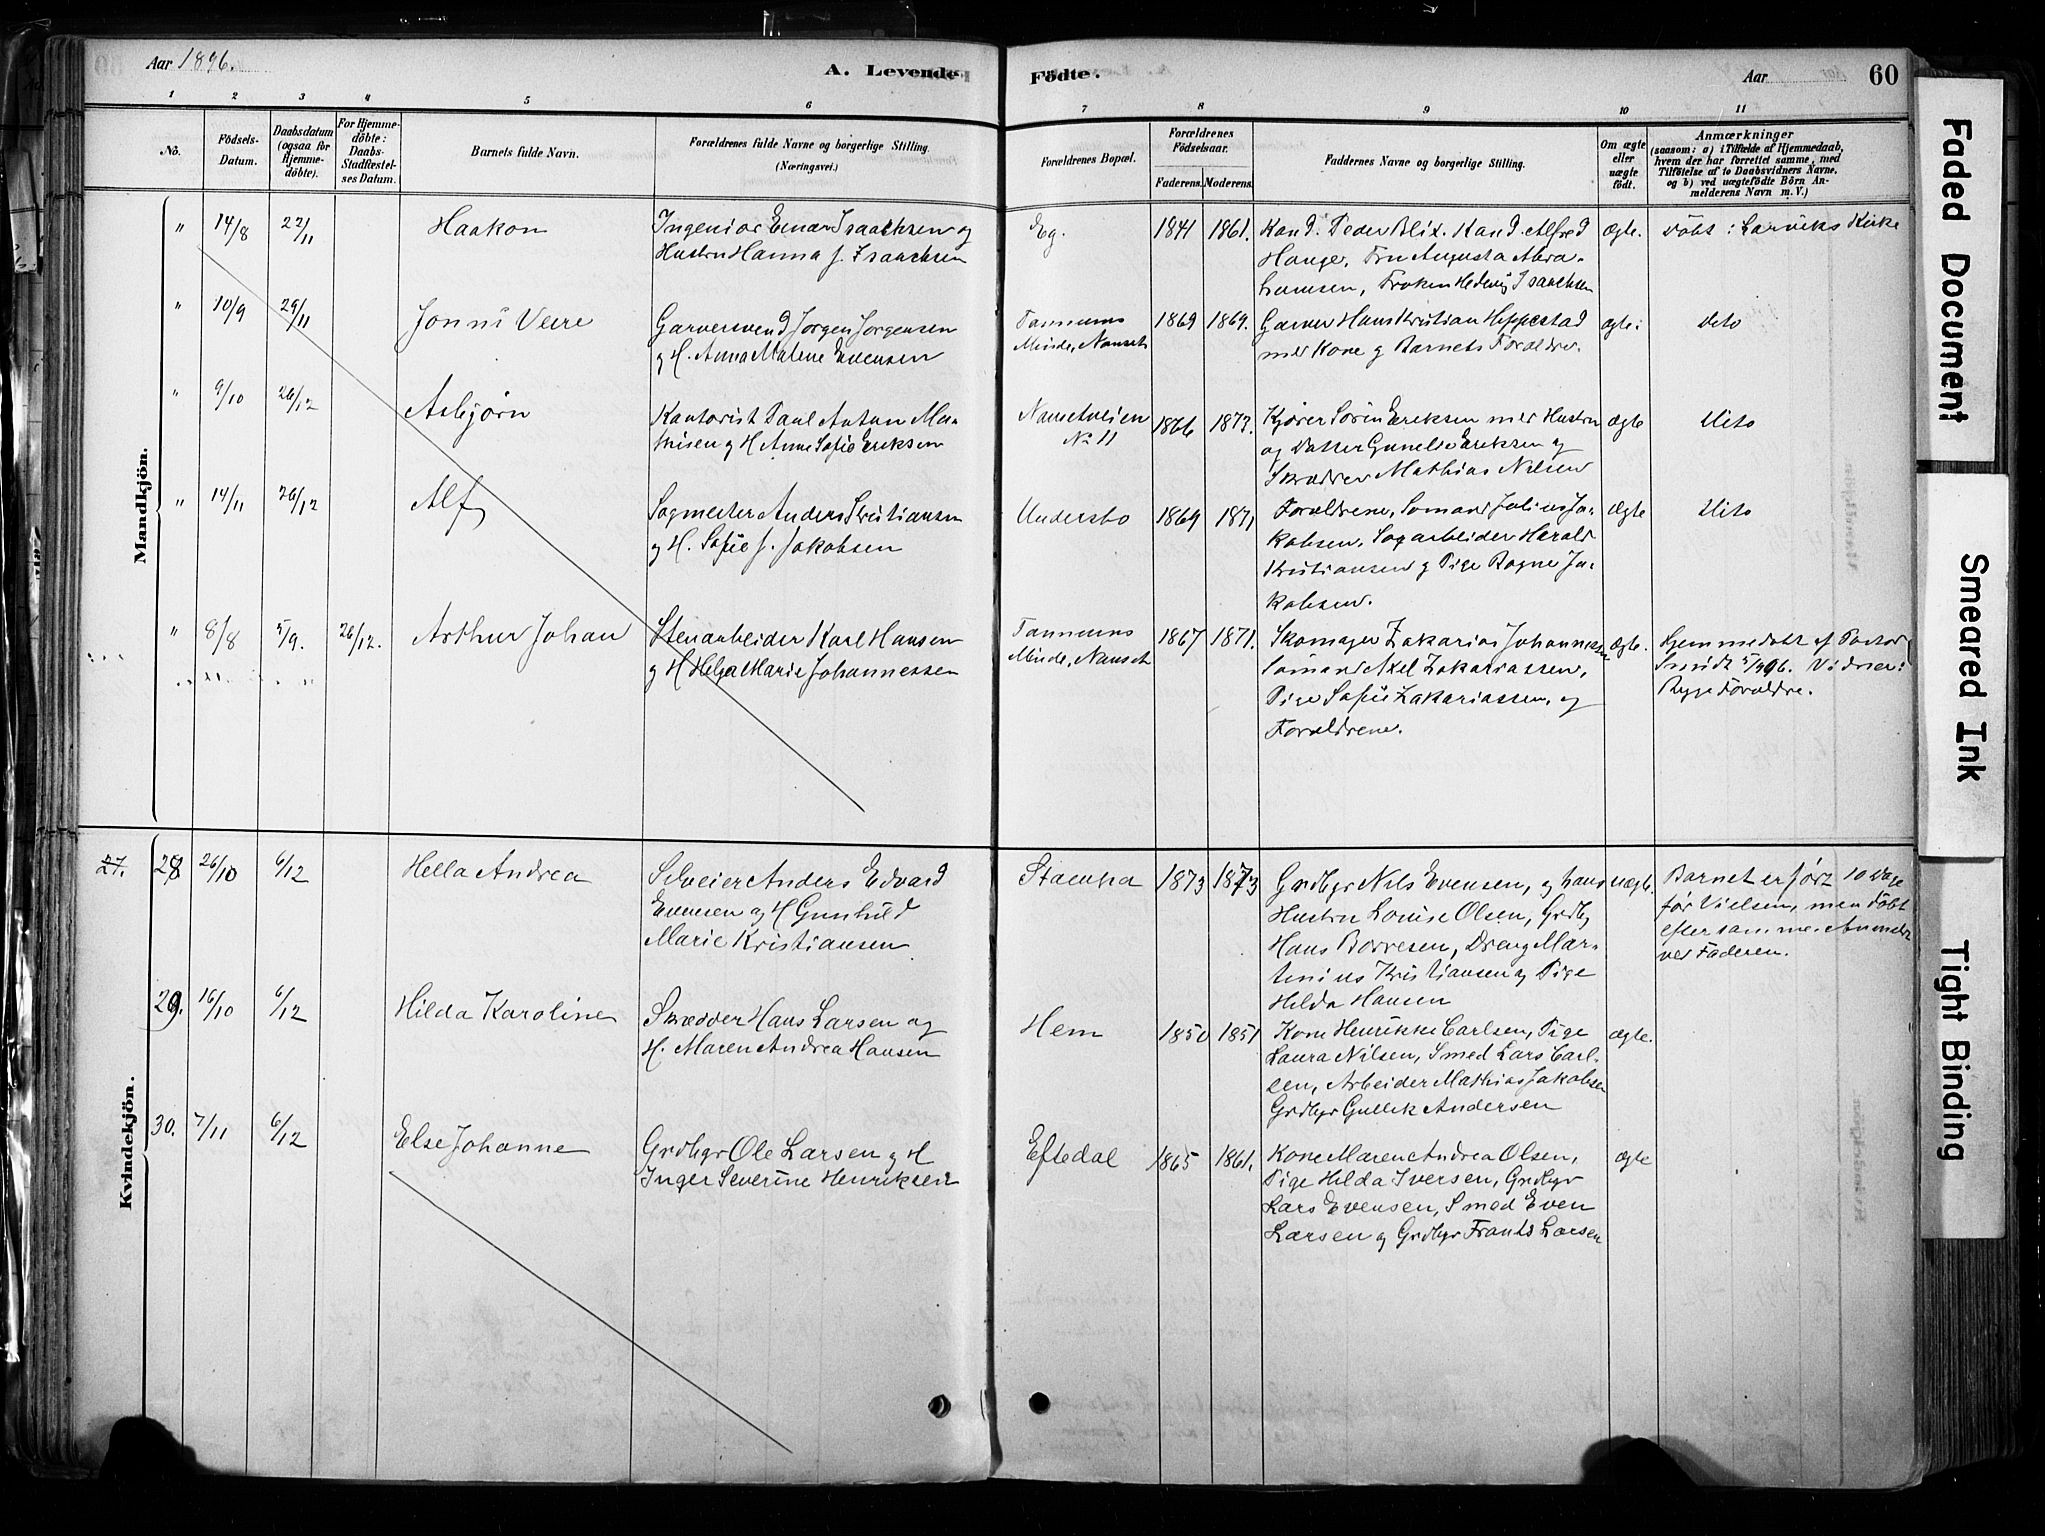 Aar 1896.
A. Levende
Födte.
Aar
60
1 2 3 4 5 6 7 8 9 10 11
No.
Födsels-
Datum.
Daabsdatum
(ogsaa for
Hjemme-
döbte).
For Hjemme-
döbte:
Daabs-
Stadfæstel-
ses Datum.
Barnets fulde Navn.
Forældrenes fulde Navne og borgerlige Stilling.
(Næringsvei.)
Forældrenes Bopæl.
Forældrenes
Födselsaar.
Faderens. Moderens.
Faddernes Navne og borgerlige Stilling.
Om ægte
eller
uægte
födt.
Anmærkninger
(saasom: a) i Tilfælde af Hjemmedaab,
hvem der har forrettet samme, med
Tilföielse af to Daabsvidners Navne,
og b) ved uægtefödte Börn An-
melderens Navn m. V.)
Mandkjön.
" 14/8 22/11 Haakon
Ingeniør Einar Isaachsen og
Hustru Hanna f. Isaachsen
Eg. 1841 1861.
Kand. Peder Blix. Kand. Alfred
Hauge, Fru Augusta Abra-
hamsen, Frøken Hedvig Isaachsen
ægte. Døbt i Larviks Kirke
" 10/9 29/11 Jonni Veire
Garversvend Jørgen Jørgensen
g H. Anna Malene Evensen
Tanmums
Minde, Nanset
1869 1869.
Garver Hans Kristian Heppestad
med Kone g Barnets Forældre.
ægte: Dito
" 9/10 26/12 Asbjørn
Kontorist Paul Anton Ma-
thisen g H Anne Sofie Eriksen
Nansetveien
No 11
1866 1873.
Kjører Sørin Eriksen med Hustru
og Datter Gunelie Eriksen og
Skrædder Mathias Nilsen
ægte Dito
" 14/11 26/12 Alf
Sagmester Anders Kristiansen
g H. Sofie f. Jakobsen
Undersbo 1869 1871
Forældrene, Sømand Julius Ja-
kobsen, Sagarbeider Harald
Kristiansen g Pige Ragne Ja-
kobsen.
ægte Dito
" 8/8 5/9. 26/12. Arthur Johan
Stenarbeider Karl Hansen
g H Helga Marie Johannessen
Tanmums
Minde, Nanset
1867 1871.
Skomager Zakarias Johannesen
Sømand Axel Zakariassen,
Pige Sofie Zakariassen, og
Forældrene.
ægte. Hjemmedøbt af Pastor
Smidt 5/9 96. Vidner:
Begge Forældre.
Kvindekjön.
27. 28 26/10 6/12 Hella Andrea
Selveier Anders Edvard
Evensen og H Gunhild
Marie Kristiansen
Staenha 1873 1873
Grdbgr Nils Evensen, og hans
Hustru Louise Olsen, Grdbg
Hans Borresen, Dreng Mar-
tinius Kristiansen g Pige
Hilda Hansen
uægte. Barnet er født 10 Dage
før Vielsen, men døbt
efter samme. Anmeldt
ved Faderen.
29. 16/10 6/12 Hilda Karoline
Skrædder Hans Larsen og
H. Maren Andrea Hansen
Hem 1850 1851
Kone Henrikke Carlsen, Pige
Laura Nilsen, Smed Lars Carl-
sen, Arbeider Mathias Jakobsen
Grdbgr Gullik Andersen
ægte.
30. 7/11 6/12 Else Johanne
Grdbgr Ole Larsen g H
Inger Severine Henriksen
Eftedal 1865 1861.
Kone Maren Andrea Olsen,
Pige Hilda Iversen, Grdbgr
Lars Evensen, Smed Even
Larsen g Grdbgr Frants Larsen
ægte
Faded Document
Smeared Ink
Tight Binding